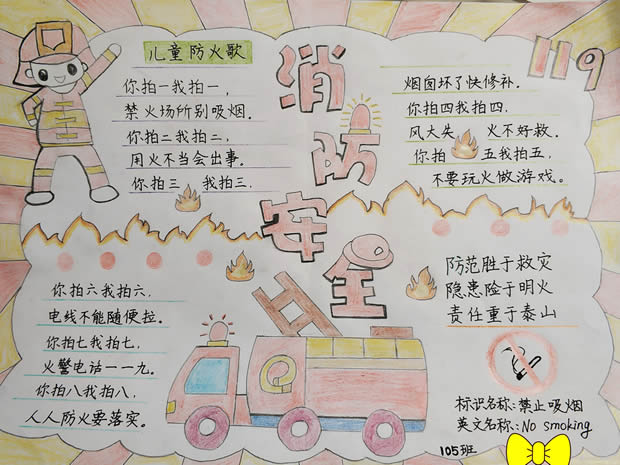 消防安全
119
儿童防火歌
你拍一我拍一，
禁火场所别吸烟．
你拍二我拍二，
用火不当会出事．
你拍三 我拍三．
烟囱坏了快修补．
你拍四我拍四．
风大失 火不好救．
你拍 五我拍五，
不要玩火做游戏。
你拍六我拍六，
电线不能随便拉．
你拍七我拍七，
火警电话一一九．
你拍八我拍八，
人人防火要落实．
防范胜于救灾
隐患险于明火
责任重于泰山
标识名称：禁止吸烟
英文名称：No smoking
105班